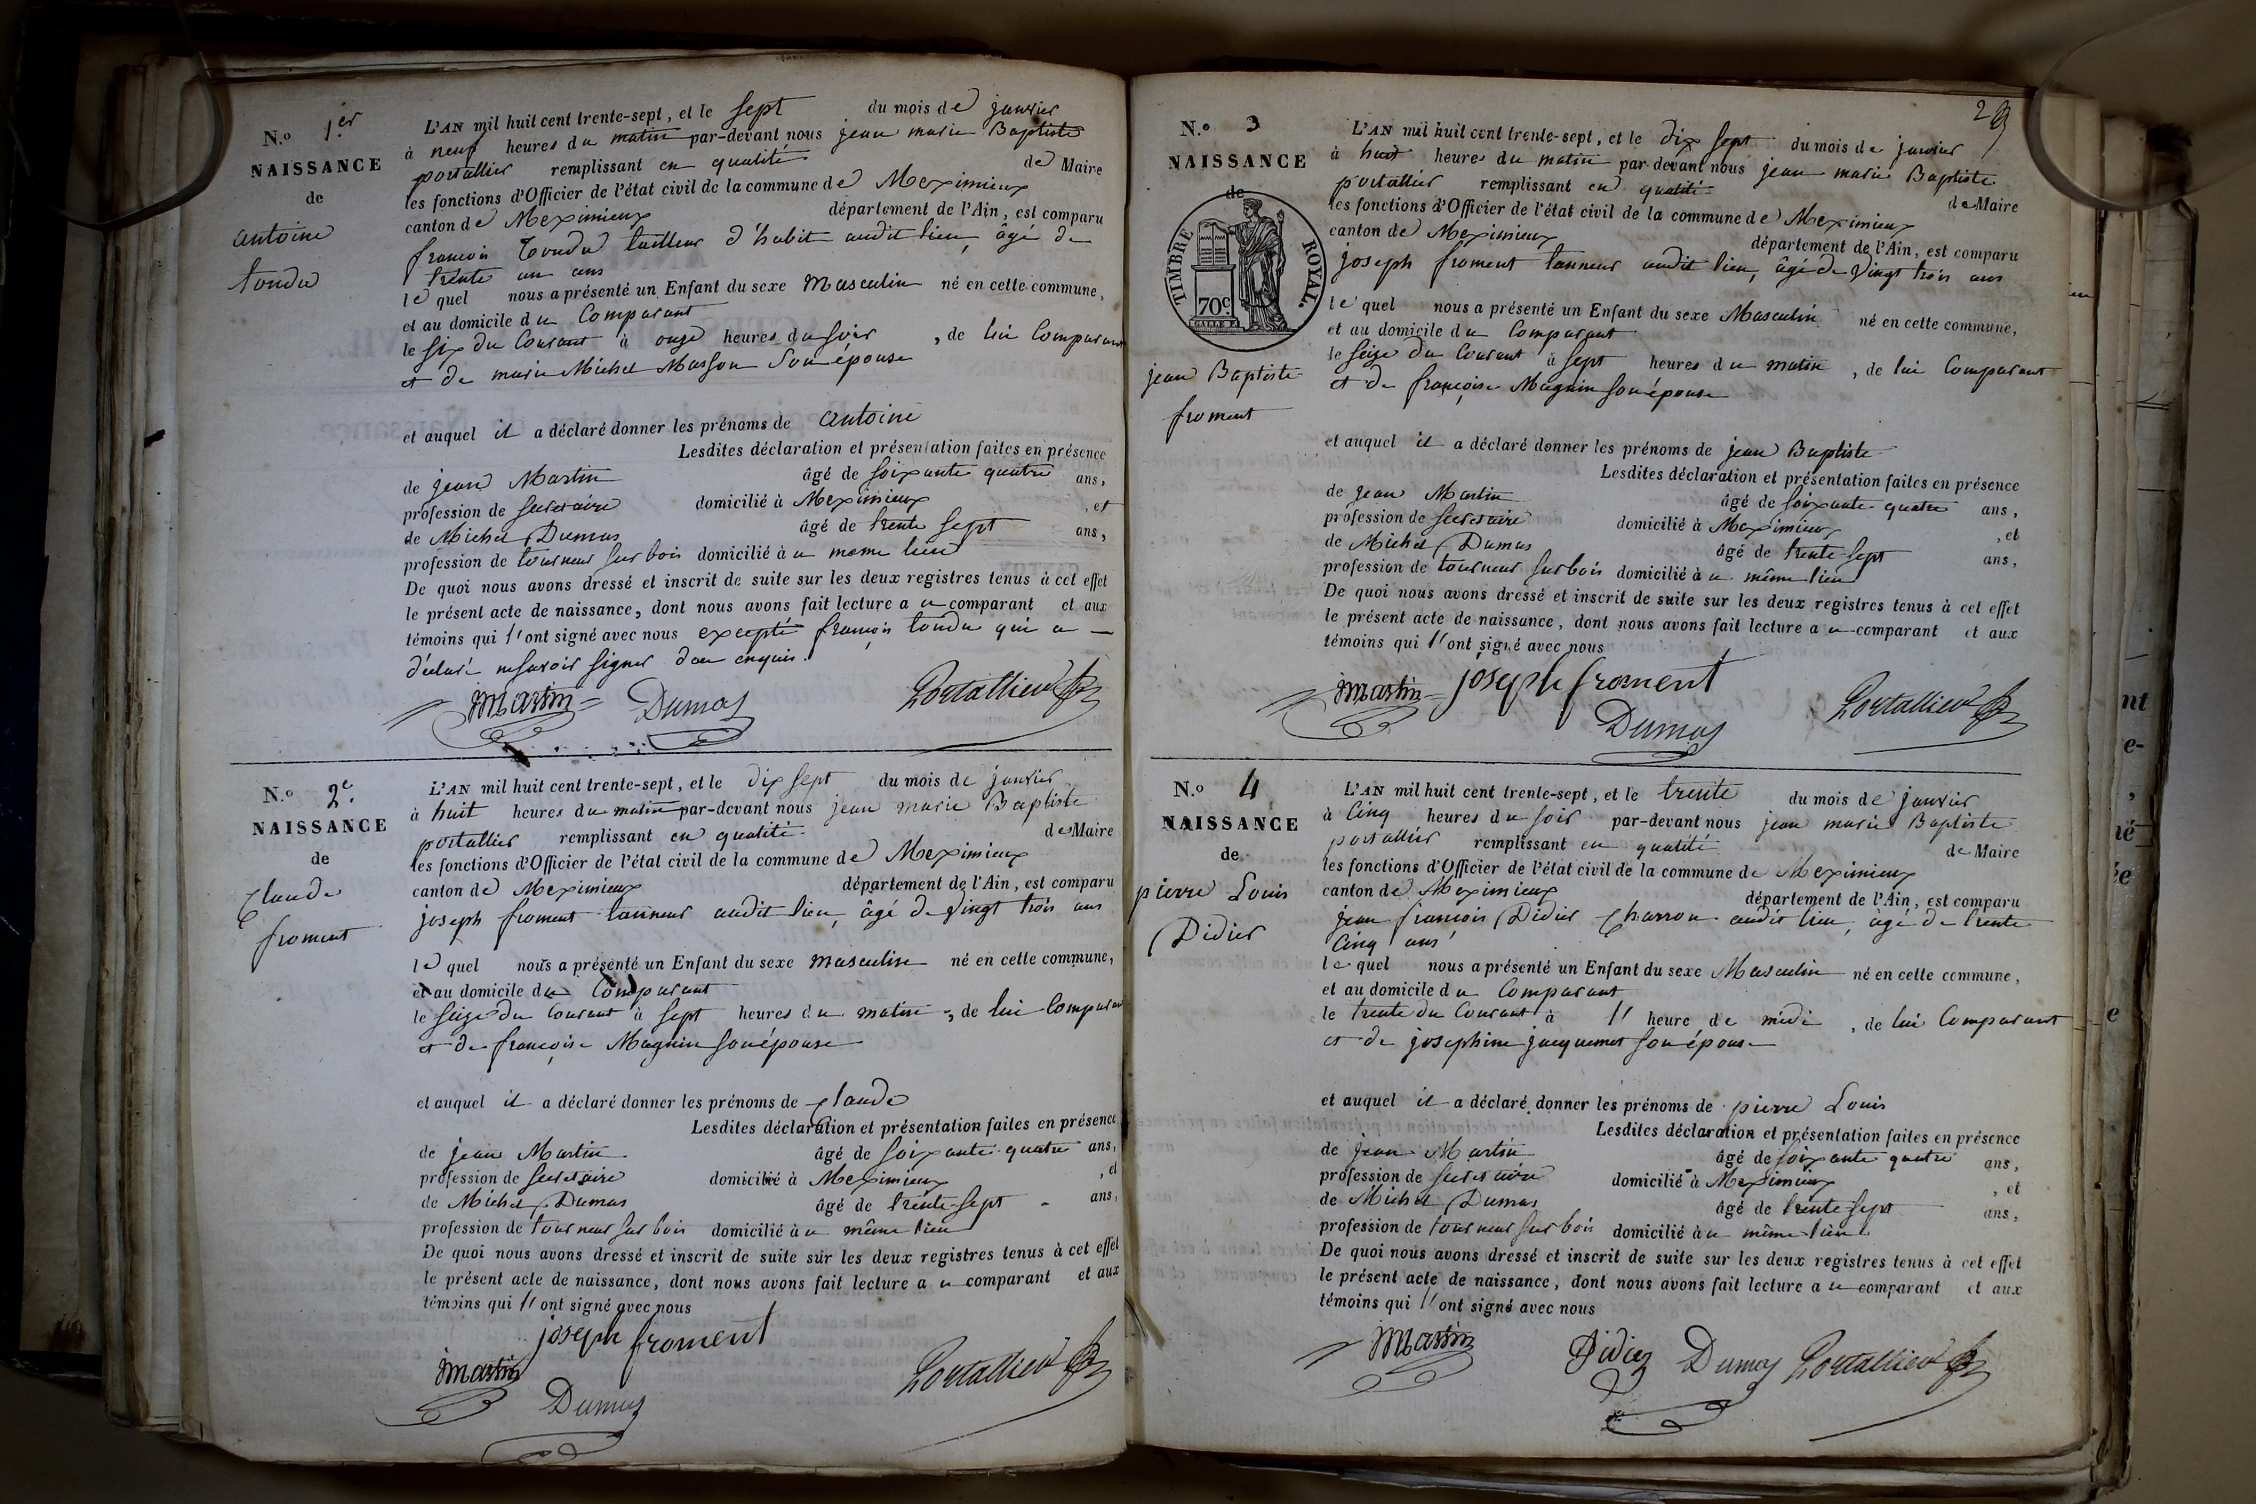 N.o 1.er
NAISSANCE
de
antoine
tondu
L'AN mil huit cent trente-sept, et le sept du mois de janvier
à neuf heures du matin par-devant nous jean marie Baptiste
portallier remplissant en qualité de Maire
les fonctions d'Officier de l'état civil de la commune de Meximieux
canton de Meximieux département de l'Ain, est comparu
francois tondu tailleur d'habit audit lieu, âgé de
trente un ans
le quel nous a présenté un Enfant du sexe Masculin né en cette commune,
et au domicile du Comparant
le six du Courant à onze heures du soir, de lui Comparant
et de marie Michel Masson son épouse
et auquel il a déclaré donner les prénoms de antoine
Lesdites déclaration et présentation faites en présence
de jean Martin âgé de soixante quatre ans,
profession de secretaire domicilié à Meximieux, et
de Michel Dumas âgé de trente sept ans,
profession de tourneur sur bois domicilié à u meme lieu
De quoi nous avons dressé et inscrit de suite sur les deux registres tenus à cet effet
le présent acte de naissance, dont nous avons fait lecture a u comparant et aux
témoins qui l'ont signé avec nous excepté françois tondu qui a
déclaré ne savoir signer de ce enquis.
jmartin Dumas Portallier
N.o 2.e
NAISSANCE
de
claude
froment
L'AN mil huit cent trente-sept, et le dix sept du mois de janvier
à huit heures du matin par-devant nous jean marie Baptiste
portallier remplissant en qualité de Maire
les fonctions d'Officier de l'état civil de la commune de Meximieux
canton de Meximieux département de l'Ain, est comparu
joseph froment tanneur audit lieu, âgé de vingt trois ans
le quel nous a présenté un Enfant du sexe masculin né en cette commune,
et au domicile du Comparant
le seize du Courant à sept heures du matin, de lui Comparant
et de françoise Magnin son épouse
et auquel il a déclaré donner les prénoms de claude
Lesdites déclaration et présentation faites en présence
de jean Martin âgé de soixante quatre ans,
profession de secretaire domicilié à Meximieux, et
de Michel Dumas âgé de trente-sept ans,
profession de tourneur sur bois domicilié à u même lieu
De quoi nous avons dressé et inscrit de suite sur les deux registres tenus à cet effet
le présent acte de naissance, dont nous avons fait lecture a u comparant et aux
témoins qui l'ont signé avec nous
joseph froment
jmartin Dumas Portallier
29
N.o 3
NAISSANCE
de
TIMBRE ROYAL.
70c
jean Baptiste
froment
L'AN mil huit cent trente-sept, et le dix sept du mois de janvier
à huit heures du matin par-devant nous jean marie Baptiste
portallier remplissant en qualité de Maire
les fonctions d'Officier de l'état civil de la commune de Meximieux
canton de Meximieux département de l'Ain, est comparu
joseph froment tanneur audit lieu, âgé de vingt trois ans
le quel nous a présenté un Enfant du sexe Masculin né en cette commune,
et au domicile du Comparant
le seize du Courant à sept heures du matin, de lui Comparant
et de françoise Magnin son épouse
et auquel il a déclaré donner les prénoms de jean Baptiste
Lesdites déclaration et présentation faites en présence
de jean Martin âgé de soixante quatre ans,
profession de secretaire domicilié à Meximieux, et
de Michel Dumas âgé de trente-sept ans,
profession de tourneur sur bois domicilié à u même lieu
De quoi nous avons dressé et inscrit de suite sur les deux registres tenus à cet effet
le présent acte de naissance, dont nous avons fait lecture a u comparant et aux
témoins qui l'ont signé avec nous
jmartin joseph froment
Dumas Portallier
N.o 4
NAISSANCE
de
pierre Louis
Didier
L'AN mil huit cent trente-sept, et le trente du mois de janvier
à Cinq heures du soir par-devant nous jean marie Baptiste
portallier remplissant en qualité de Maire
les fonctions d'Officier de l'état civil de la commune de Meximieux
canton de Meximieux département de l'Ain, est comparu
jean françois Didier charron audit lieu, âgé de trente
Cinq ans
le quel nous a présenté un Enfant du sexe Masculin né en cette commune,
et au domicile du Comparant
le trente du Courant à l' heure de midi, de lui Comparant
et de josephine jacquemet son épouse
et auquel il a déclaré donner les prénoms de pierre Louis
Lesdites déclaration et présentation faites en présence
de jean Martin âgé de soixante quatre ans,
profession de secretaire domicilié à Meximieux, et
de Michel Dumas âgé de trente-sept ans,
profession de tourneur sur bois domicilié à u même lieu
De quoi nous avons dressé et inscrit de suite sur les deux registres tenus à cet effet
le présent acte de naissance, dont nous avons fait lecture a u comparant et aux
témoins qui l'ont signé avec nous
jmartin Didier Dumas Portallier